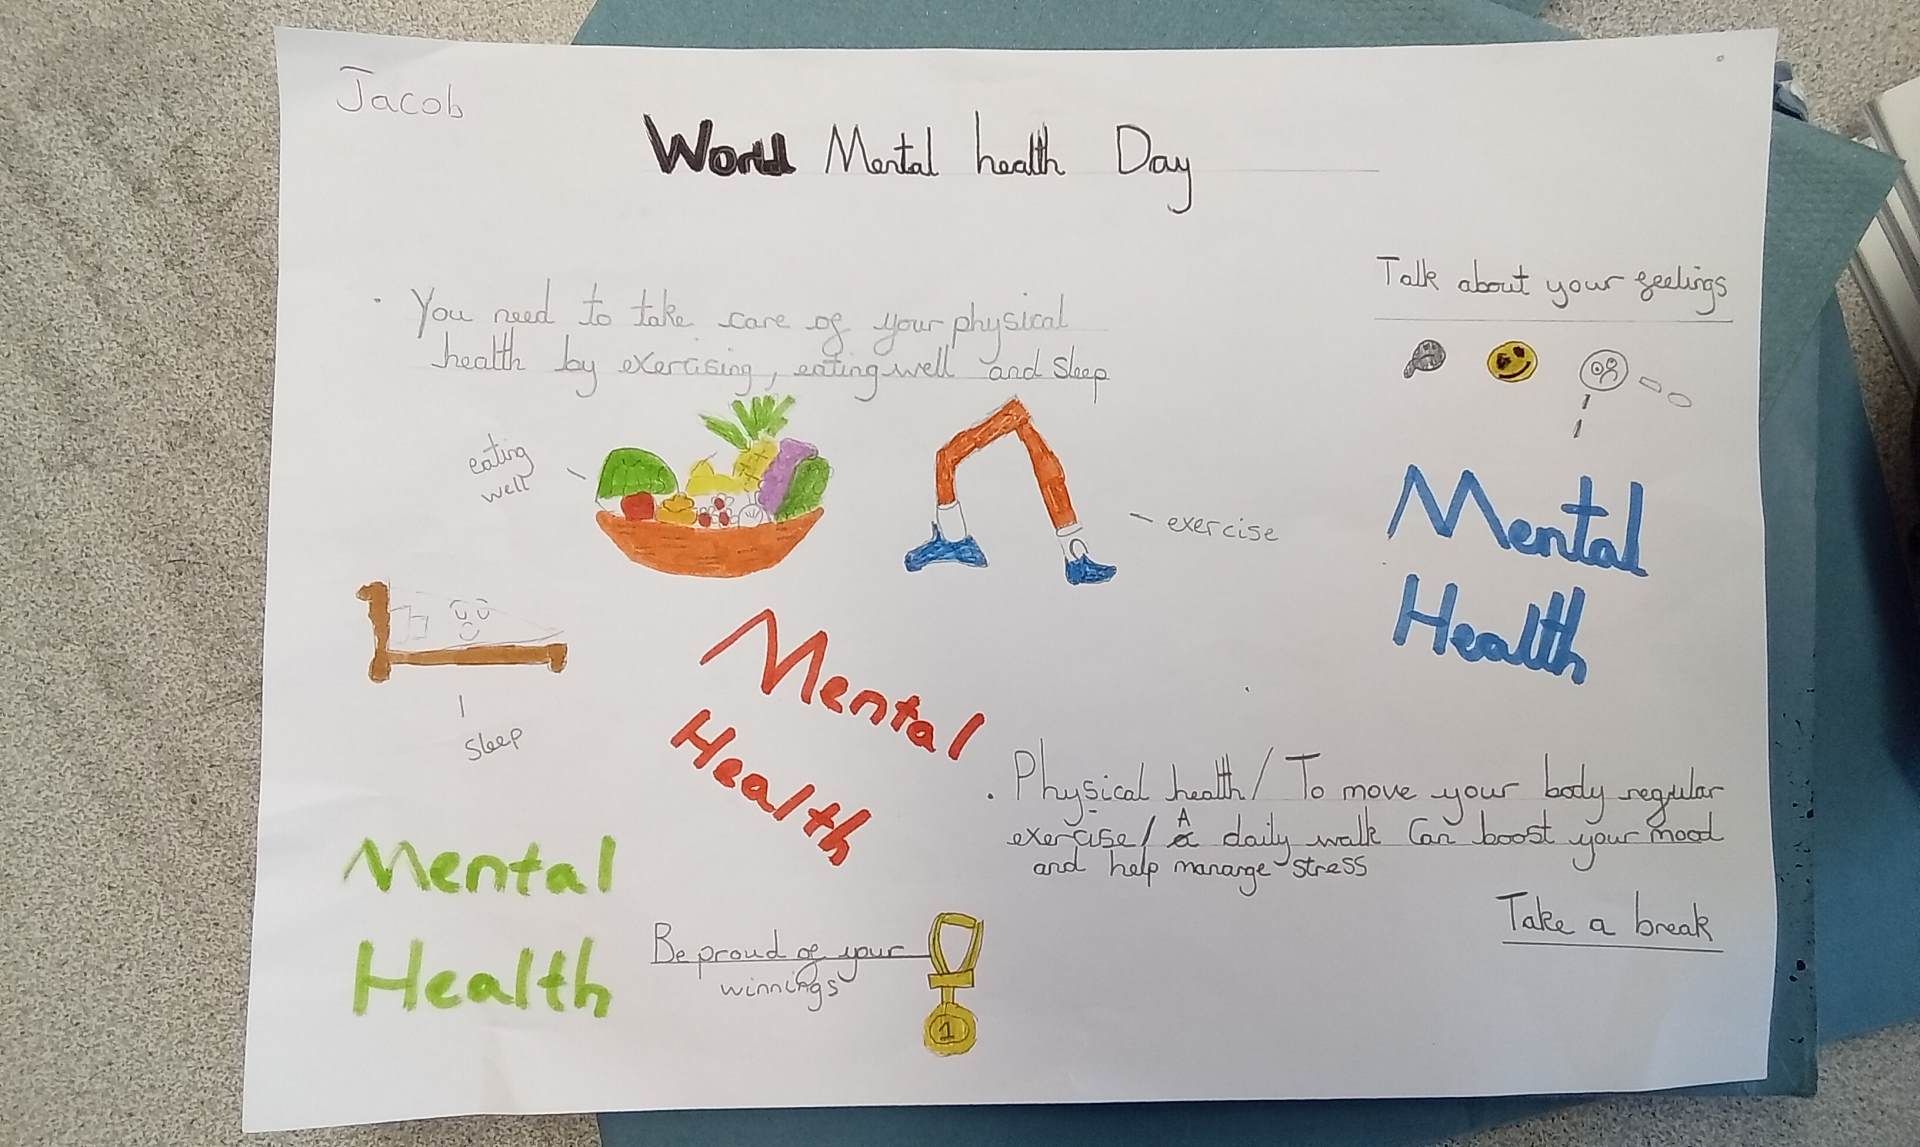 Jacob
World Mental health Day
Talk about your feelings
· You need to take care of your physical
health by exercising, eating well and sleep
eating
well
exercise
Mental
Health
sleep
Mental
Health
· Physical health / To move your body regular
exercise / A daily walk Can boost your mood
and help manange stress
Take a break
Mental
Health
Be proud of your
winnings
1